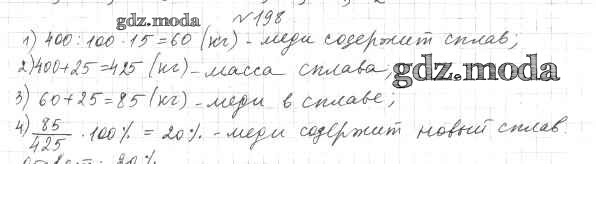 gdz.moda №198
1) 400:100·15=60 (кг) - меди содержит сплав;
2) 400+25=425 (кг) - масса сплава; gdz.moda
3) 60+25=85 (кг) - меди в сплаве;
4) 85/425 · 100% = 20% - меди содержит новый сплав.
20%